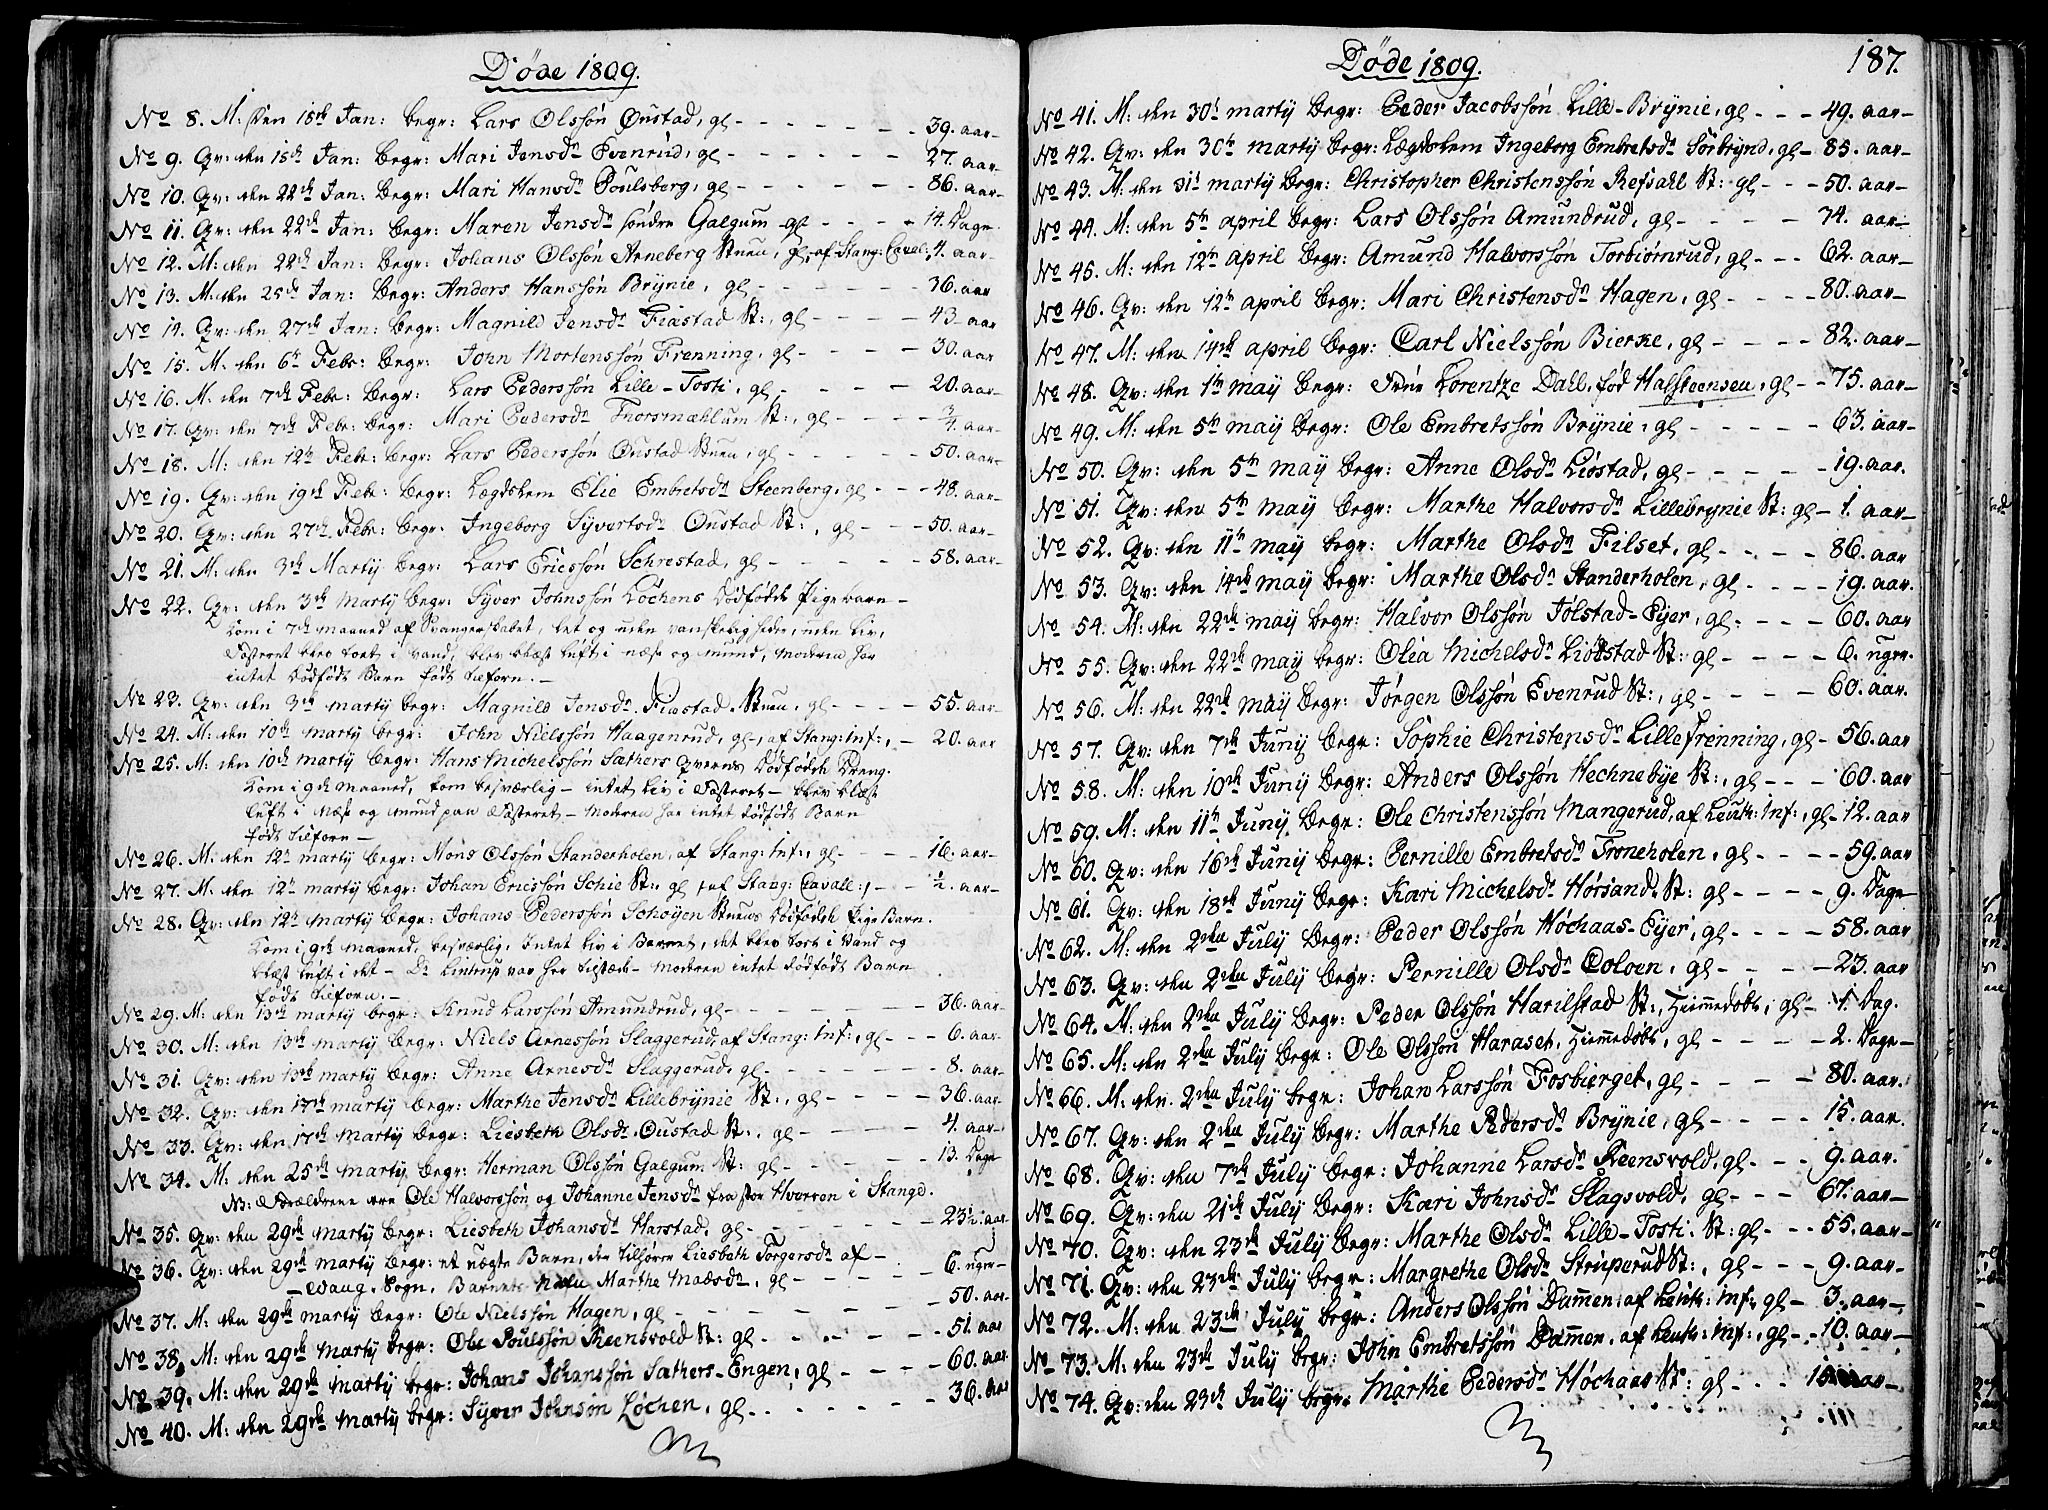 Døde 1809.
No 8. M: den 15de Jan: begr: Lars Olssøn Oustad, gl - - - 39. aar
No 9. Qv: den 15de Jan: begr: Mari Jensdr Evenrud, gl - - - 27. aar
No 10. Qv: den 22de Jan: begr: Mari Hansdr Poulsberg, gl - - - 86. aar
No 11. Qv: den 22de Jan: begr: Maren Jensdr søndre Galgum gl - - - 14. Dage
No 12. M: den 22de Jan: begr: Johans Olssøn Arneberg Stuen, gl, af Stang: Caval: 4. aar
No 13. M: den 25de Jan: begr: Anders Hanssøn Brÿnie, gl - - - 36. aar
No 14. Qv: den 27de Jan: begr: Magnild Jensdr Fiæstad St:, gl - - - 43 aar
No 15. M. den 6te Febr: begr: John Mortenssøn Frenning, gl - - - 30. aar
No 16. M. den 7de Febr: begr: Lars Pederssøn Lille-Tosti, gl - - - 20. aar
No 17. Qv: den 7de Febr: begr: Mari Pedersdr Thorsmæhlum St:, gl - - - 3/4. aar
No 18. M. den 12te Febr: begr: Lars Pederssøn Oustad Stuen, gl - - - 50. aar
No 19. Qv: den 19de Febr: begr: Lægdslem Elie Embretsdr Steenberg, gl - - - 48. aar
No 20. Qv: den 27de Febr: begr: Ingeborg Syvertsdr Oustad St:, gl - - - 50. aar
No 21. M. den 3de Martÿ begr: Lars Ericssøn Schrestad, gl - - - 58. aar
No 22. Qv: den 3de Martÿ begr: Syver Johnssøn Løchens dødfødde Pigebarn
kom i 7de maaned af Svangerskabet, let og uden vanskeligheder, uden liv,
Fosteret blev toet i vand, blev blæst luft i næse og mund, moderen har
intet dødfødt Barn født tilforn.
No 23. Qv: den 3de martÿ begr: Magnild Jensdr Fiæstad Stuen, gl - - - 55. aar
No 24. M: den 10de martÿ begr: John Nielssøn Haagenrud, gl, af Stang: Inf:, - 20. aar
No 25. M: den 10de martÿ begr: Hans Michelssøn Sæthers Qverns dødfødde Dreng.
kom i 9de maaned, kom besværlig - intet liv i Fosteret - blev blæst
luft i næse og mund paa Fosteret - moderen har intet dødfødt Barn
født tilforn
No 26. M: den 12te martÿ begr: Mons Olssøn Standerholen, af Stang: Inf:, gl - - - 16. aar
No 27. M: den 12te martÿ begr: Johan Ericssøn Schie St:, gl, af Stang: Cavall:, - - 1/2. aar
No 28. Qv: den 12te martÿ begr: Johans Pederssøn Schøyen Stuens dødfødde Pige Barn.
kom i 9de maaned, besværlig, Intet liv i Barnet, det blev toet i Vand og
blæst luft i det - Dr Lintrup var her tilstæde - moderen intet dødfødt Barn
født tilforn.
No 29. M: den 13de martÿ begr: Knud Larssøn Amundrud, gl - - - 36. aar
No 30. M: den 13de martÿ begr: Niels Arnessøn Slaggerud, af Stang: Inf:, gl - - - 6. aar
No 31. Qv: den 13de martÿ begr: Anne Arnesdr Slaggerud, gl - - - 8. aar
No 32. Qv: den 17de martÿ begr: Marthe Jensdr Lillebrÿnie St:, gl - - - 36. aar
No 33. Qv: den 17de martÿ begr: Liesbeth Olsdr Oustad St:, gl - - - 4. aar
No 34. M: den 25de martÿ begr: Herman Olssøn Galgum St: gl - - - 13. Dage
NB: Forældrene ere Ole Halvorssøn og Johanne Jensdr fra stor Hverven i Stange.
No 35. Qv: den 29de martÿ begr: Liesbeth Johansdr Harstad, gl - - - 23½. aar
No 36. Qv: den 29de martÿ begr: et uægte Barn, der tilhører Liesbeth Torgersdr af
Wang, Sogn, Barnets Nafn Marthe Madsdr, gl - - - 6. uger
No 37. M: den 29de martÿ begr: Ole Nielssøn Hagen, gl - - - 50. aar
No 38. M: den 29de martÿ begr: Ole Poulssøn Reensvold St: gl - - - 51. aar
No 39. M: den 29de martÿ begr: Johans Johanssøn Sæthers-Engen, gl - - - 60. aar
No 40. M: den 29de martÿ begr: Syver Johnsøn Løchen, gl - - - 36. aar
Døde 1809.
187.
No 41. M: den 30te martÿ begr: Peder Jacobssøn Lille-Brÿnie, gl - - - 49. aar
No 42. Qv: den 30te martÿ begr: Lægdslem Ingeborg Embretsdr Sørbrynd, gl - 85. aar
No 43. M: den 31te martÿ begr: Christopher Christenssøn Refsahl St: gl - - - 50. aar
No 44. M: den 5te april begr: Lars Olssøn Amundrud, gl - - - 74. aar
No 45. M: den 12te april begr: Amund Halvorssøn Torbiørnrud, gl - - - 62. aar
No 46. Qv: den 12te april begr: Mari Christensdr Hagen, gl - - - 80. aar
No 47. M: den 14de april begr: Carl Nielssøn Bierke, gl - - - 82. aar
No 48. Qv: den 1te maÿ begr: Frue Lorentze Dahl, fød Halsteensen, gl - - 75. aar
No 49. M: den 5te maÿ begr: Ole Embretssøn Brÿnie, gl - - - 63. aar
No 50. Qv: den 5te maÿ begr: Anne Olsdr Liøstad, gl - - - 19. aar.
No 51. Qv: den 5te maÿ begr: Marthe Halvorsdr Lillebrynie St: gl - 1. aar
No 52. Qv: den 11te maÿ begr: Marthe Olsdr Filset, gl - - - 86. aar
No 53. Qv: den 14de maÿ begr: Marthe Olsdr Standerholen, gl - - - 19. aar.
No 54. M: den 22de maÿ begr: Halvor Olssøn Jølstad-Eyer, gl - - - 60. aar
No 55. Qv: den 22de maÿ begr: Olia Michelsdr Liøstad St: gl - - - 6. uger.
No 56. M: den 22de maÿ begr: Jørgen Olssøn Evenrud St:, gl - - - 60. aar.
No 57. Qv: den 7de Junÿ begr: Sophie Christensdr Lille Frenning, gl - 56. aar
No 58. M: den 10de Junÿ begr: Anders Olssøn Hechnebÿe St:, gl - - - 60. aar
No 59. M: den 11te Junÿ begr: Ole Christenssøn Mangerud, af Leuth: Inf:, gl - 12. aar
No 60. Qv: den 16de Junÿ begr: Pernille Embretsdr Froneholen, gl - - - 59. aar
No 61. Qv: den 18de Junÿ begr: Kari Michelsdr Hørsand St: gl - - - 9. Dage
No 62. M: den 2den Julÿ begr: Peder Olssøn Høchaas-Eyer, gl - - - 58. aar
No 63. Qv: den 2den Julÿ begr: Pernille Olsdr Coloen, gl - - - 23. aar
No 64. M: den 2den Julÿ begr: Peder Olssøn Harilstad St:, Hjemmedøbt, gl - 1. Dag.
No 65. M: den 2den Julÿ begr: Ole Olssøn Haraset, Hjemmedøbt, gl - - - 2. Dage
No 66. M: den 2den Julÿ begr: Johan Larssøn Fosbierget, gl - - - 80. aar.
No 67. Qv: den 2den Julÿ begr: Marthe Pedersdr Brÿnie, gl - - - 15. aar.
No 68. Qv: den 7de Julÿ begr: Johanne Larsdr Reensvold, gl - - - 9. aar.
No 69. Qv: den 21de Julÿ begr: Kari Johnsdr Slagsvold, gl - - - 67. aar
No 70. Qv: den 23de Julÿ begr: Marthe Olsdr Lille-Tosti St: gl - - 55. aar
No 71. Qv: den 23de Julÿ begr: Margrethe Olsdr Struperud St:, gl - - - 9. aar
No 72. M: den 23de Julÿ begr: Anders Olssøn Dammen: af Leuth: Inf: gl - 3. aar
No 73. M: den 23de Julÿ begr: John Embretssøn Dammen, af Leuth: Inf:, gl - - 10. aar
No 74. Qv: den 23de Julÿ begr: Marthe Pedersdr Høchaas St: gl - - - aar